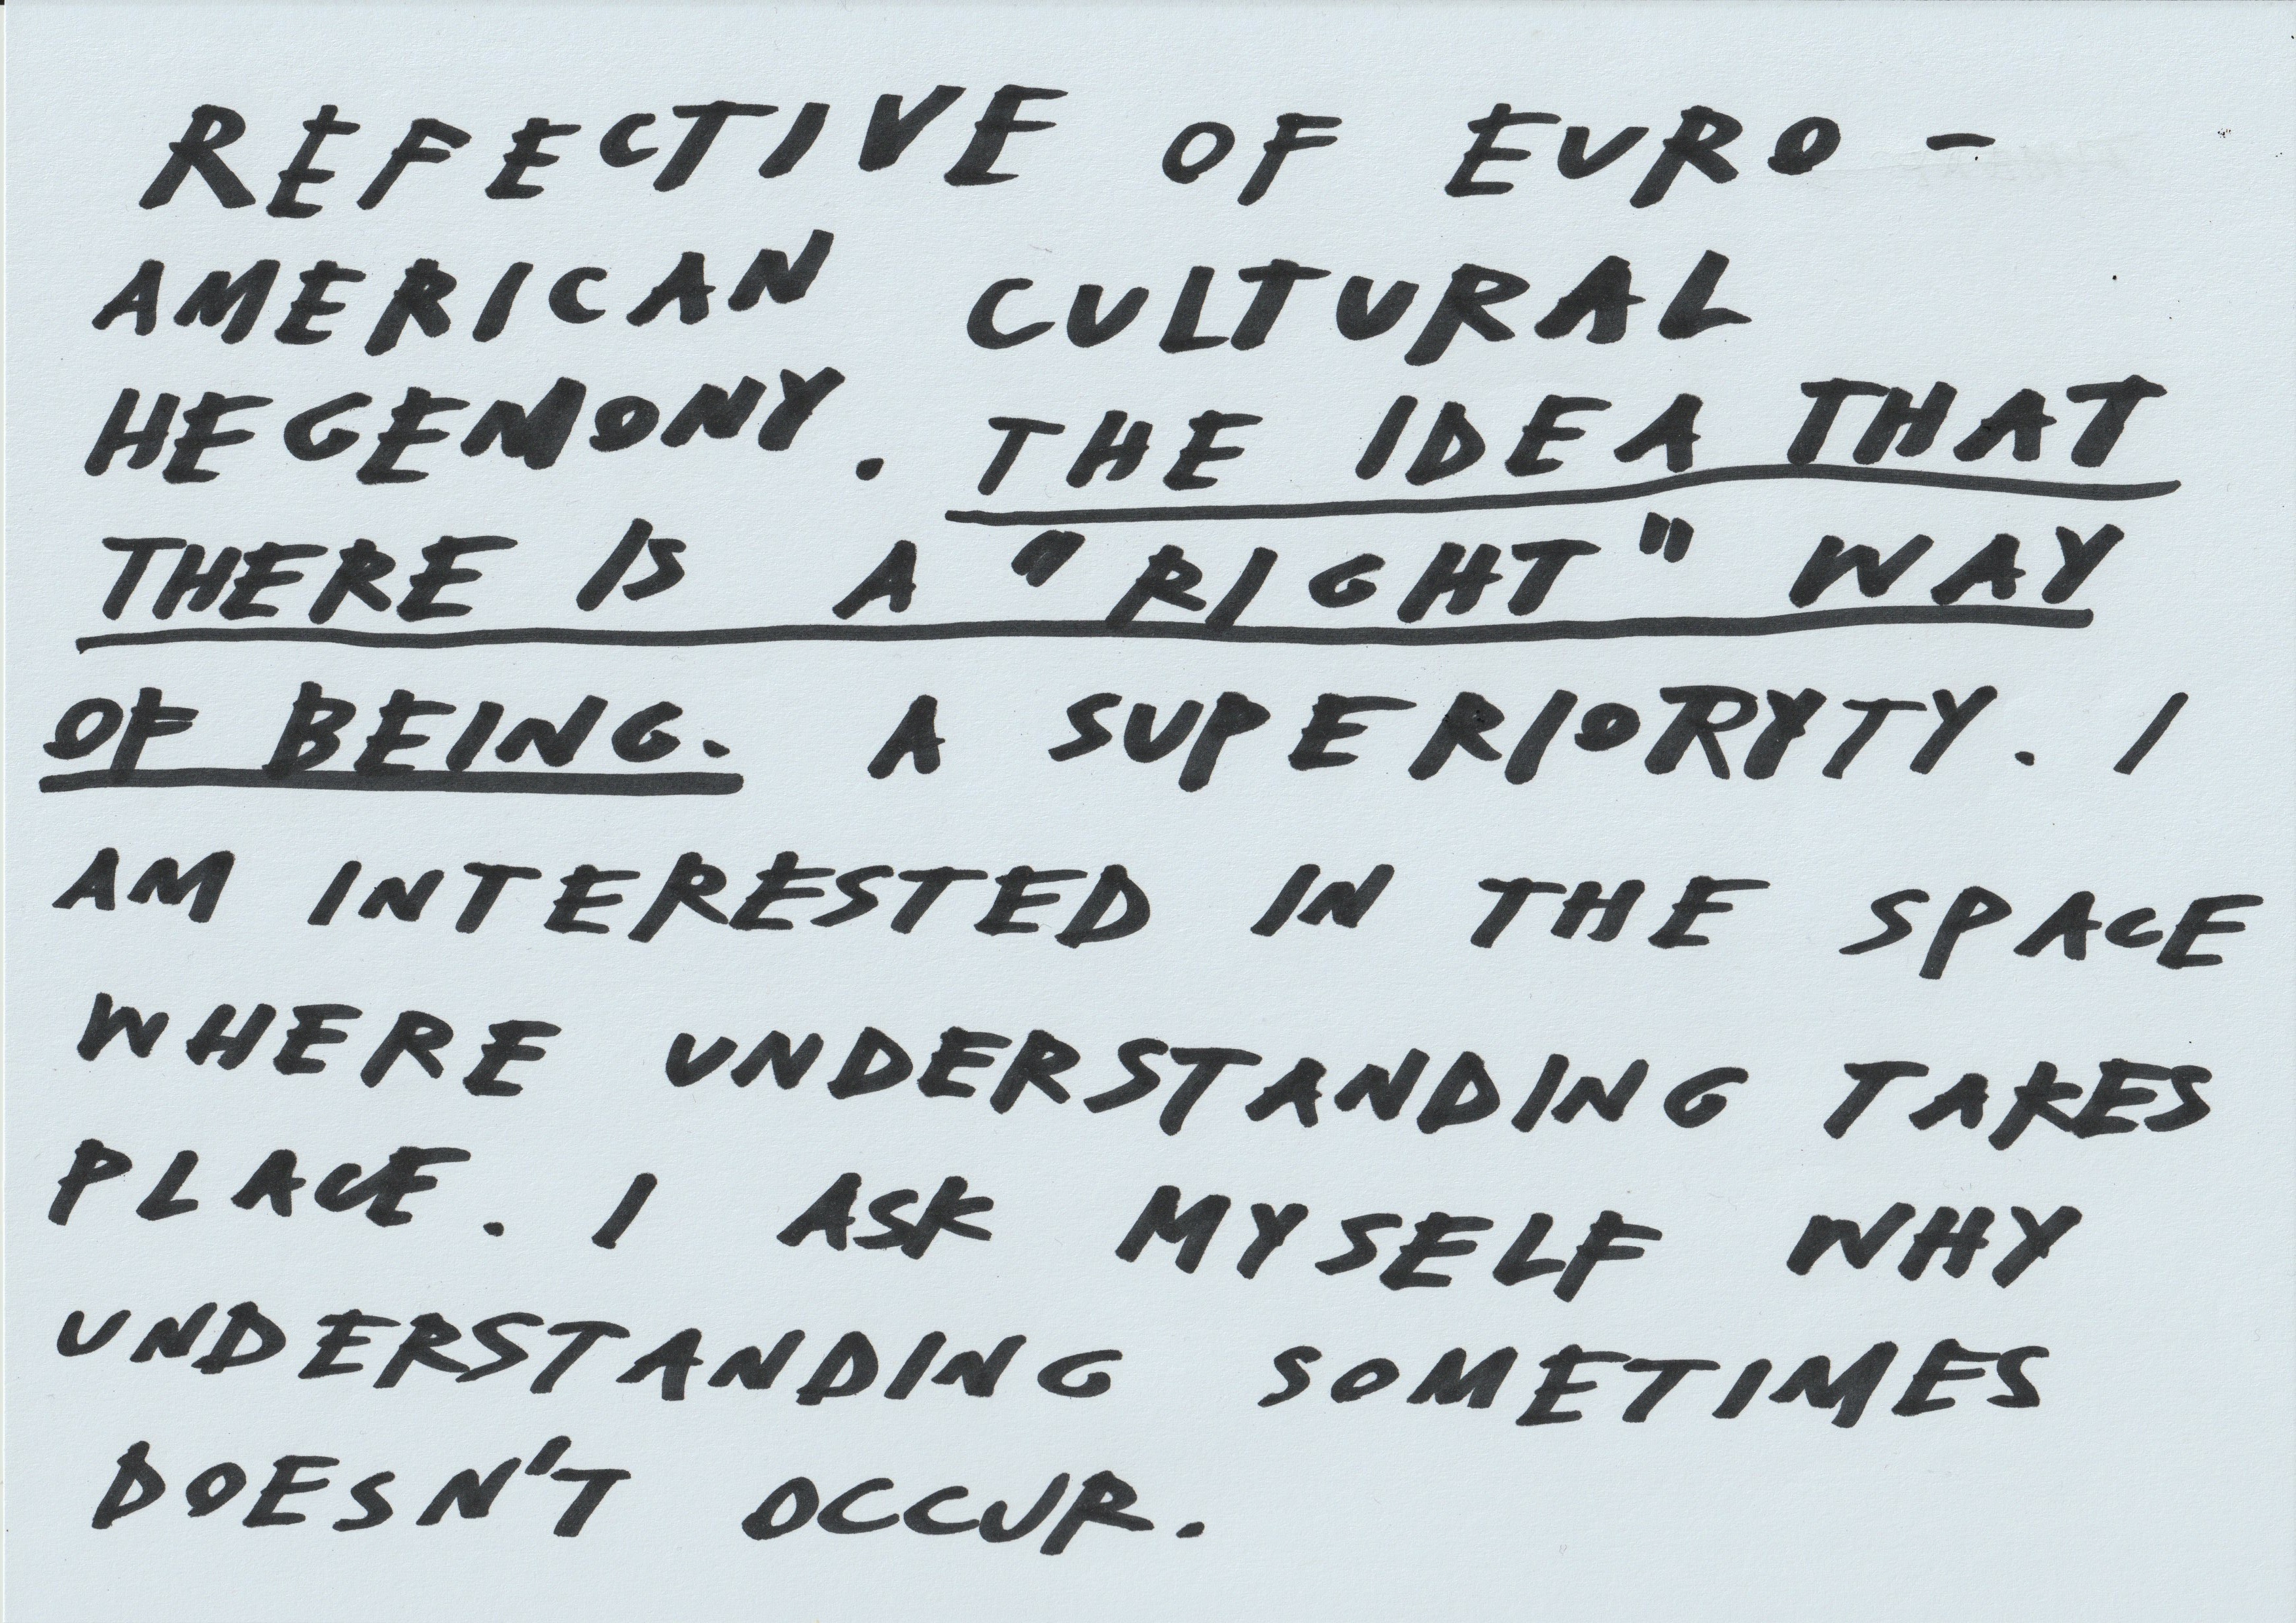 REFECTIVE OF EURO-
AMERICAN CULTURAL
HEGEMONY. THE IDEA THAT
THERE IS A "RIGHT" WAY
OF BEING. A SUPERIORYTY. I
AM INTERESTED IN THE SPACE
WHERE UNDERSTANDING TAKES
PLACE. I ASK MYSELF WHY
UNDERSTANDING SOMETIMES
DOESN'T OCCUR.